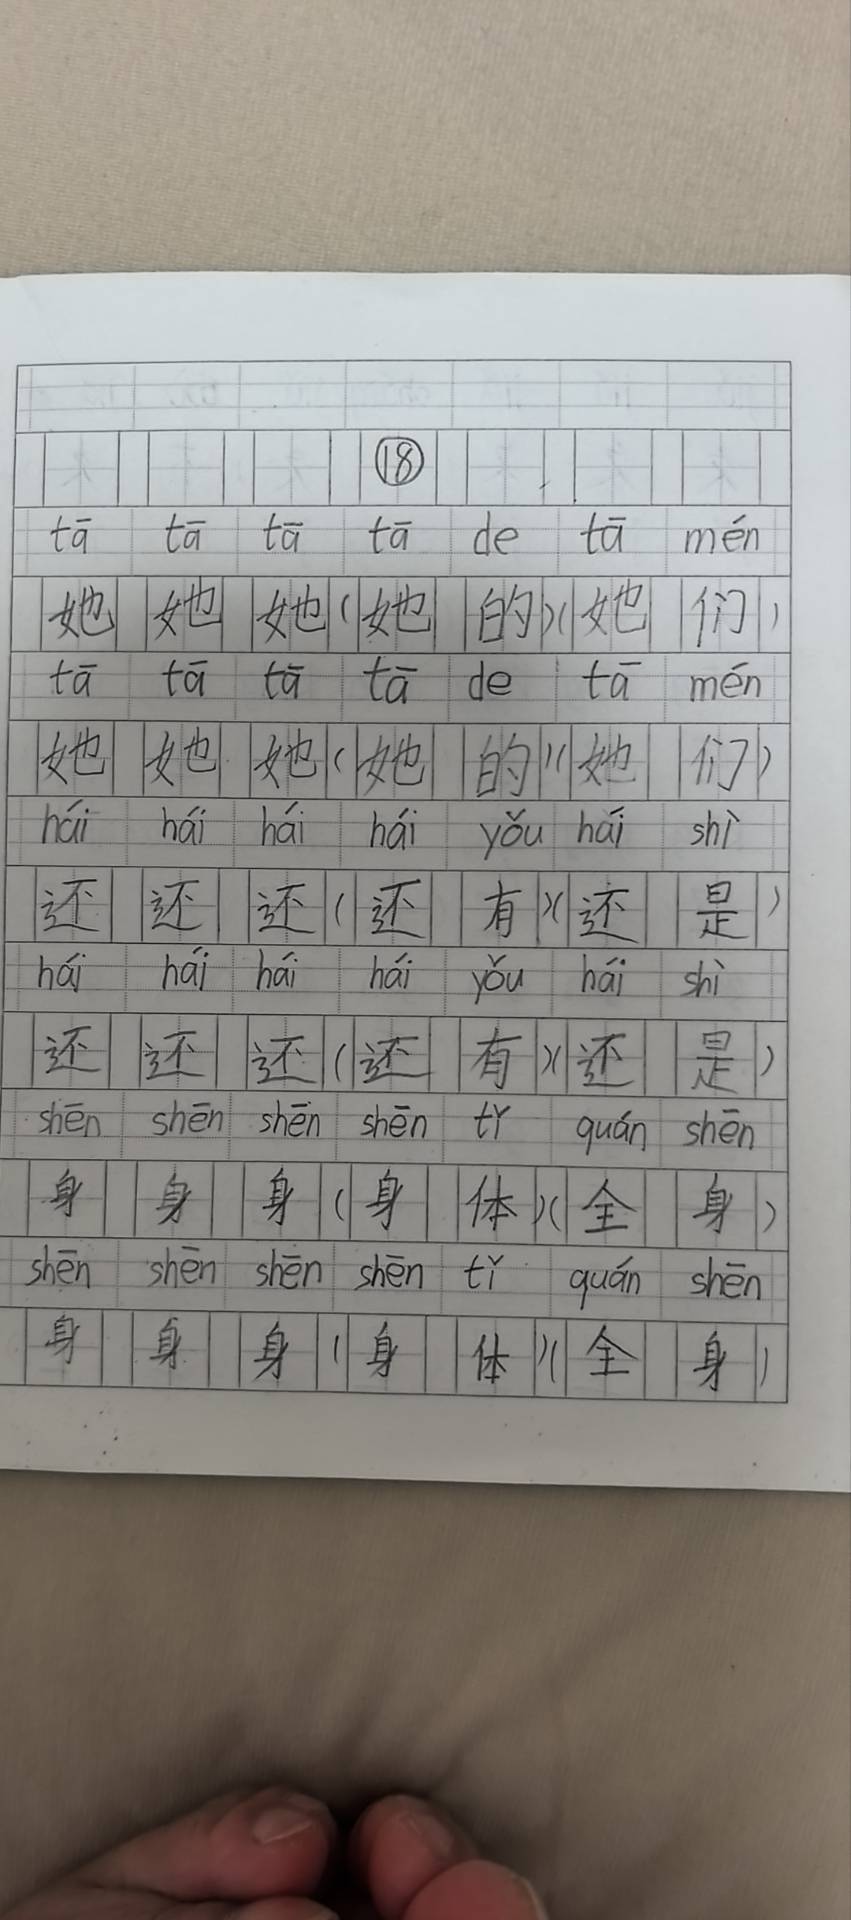 ⑱
tā tā tā tā de tā mén
她 她 她(她 的)(她 们)
tā tā tā tā de tā mén
她 她 她(她 的)(她 们)
hái hái hái hái yǒu hái shì
还 还 还(还 有)(还 是)
hái hái hái hái yǒu hái shì
还 还 还(还 有)(还 是)
shēn shēn shēn shēn tǐ quán shēn
身 身 身(身 体)(全 身)
shēn shēn shēn shēn tǐ quán shēn
身 身 身(身 体)(全 身)